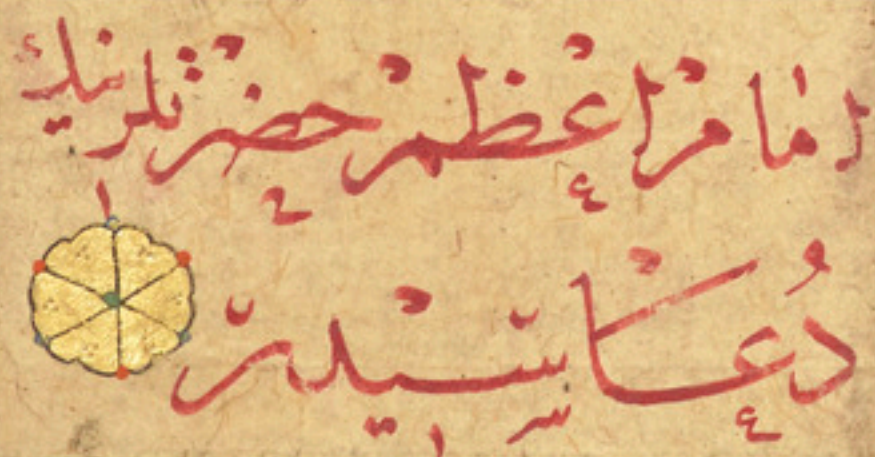 امام اعظم حضرتلرينك
دُعاسيدر